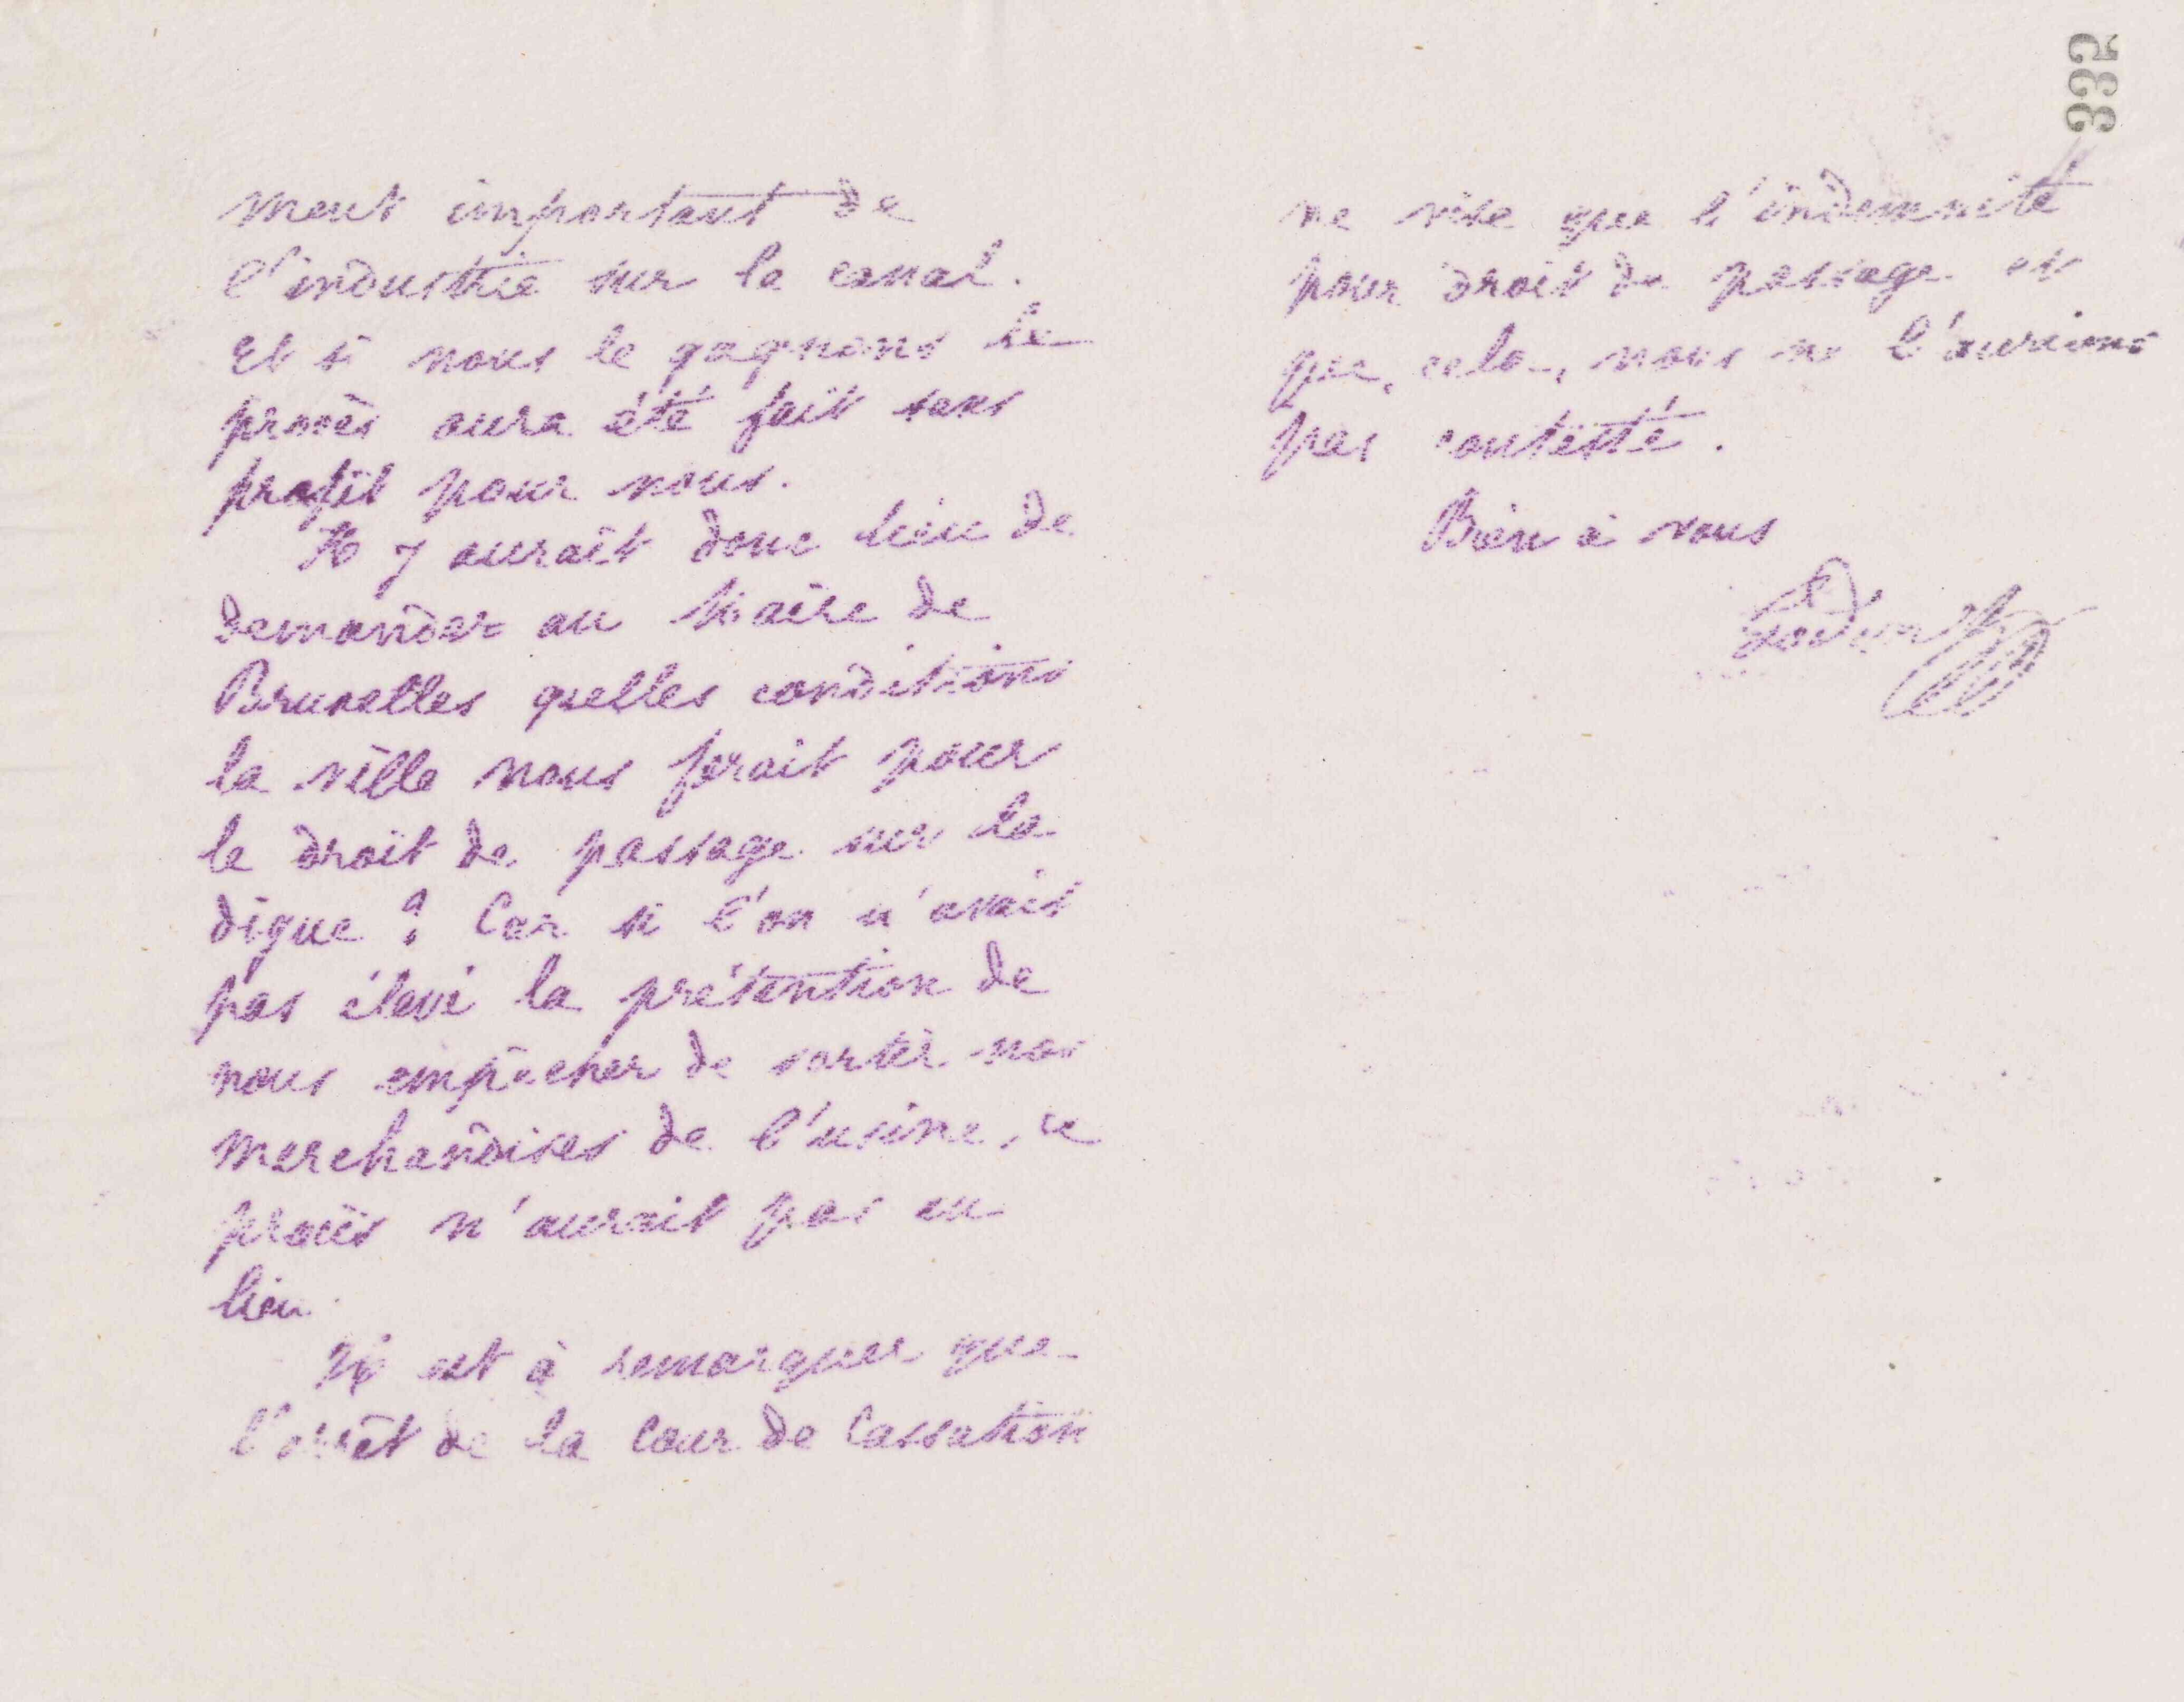 ment important de
l'industrie sur le canal.
Et si nous le gagnons le
procès aura été fait sans
profit pour nous.
Il y aurait donc lieu de
demander au Maire de
Bruxelles quelles conditions
la ville nous ferait pour
le droit de passage sur la
digue ? Car si l'on n'avait
pas élevé la prétention de
nous empêcher de sortir nos
marchandises de l'usine, ce
procès n'aurait pas eu
lieu.
Il est à remarquer que
l'arrêt de la Cour de Cassation
335
ne vise que l'indemnité
pour droit de passage et
que, cela, nous ne l'aurions
pas contesté.
Bien à vous
Godin